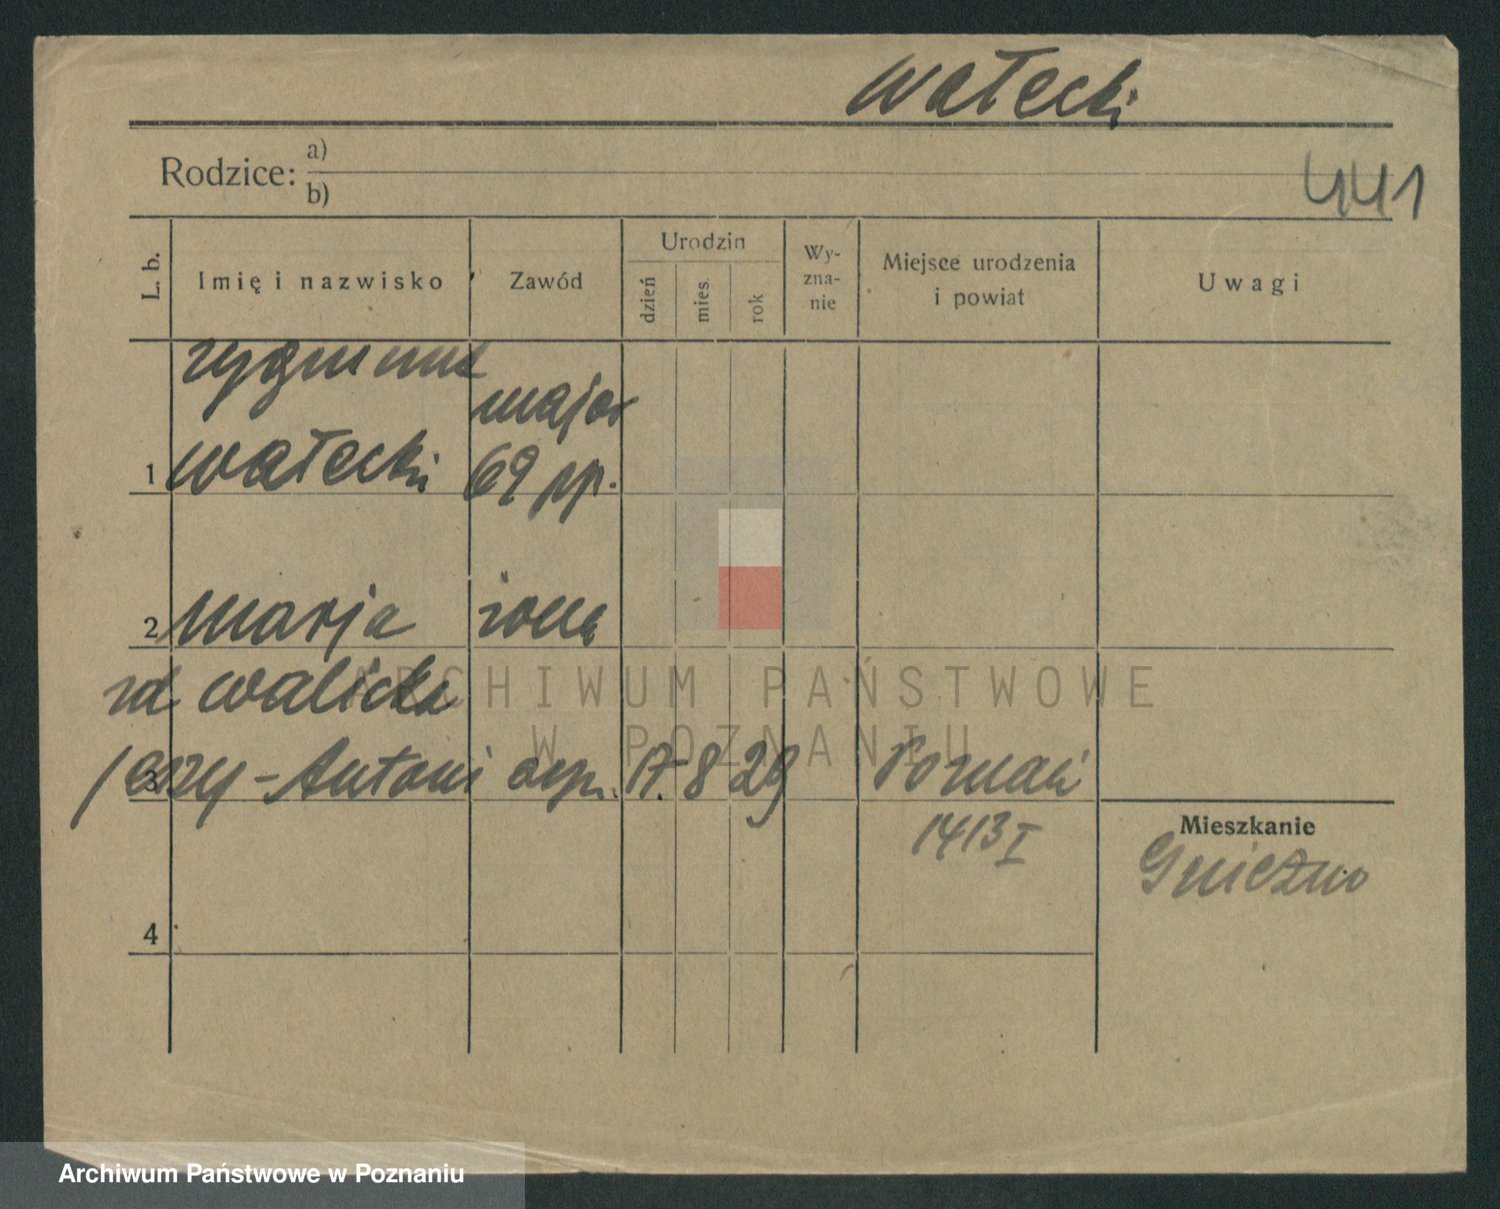 Wałecki
Rodzice: a)
b)
441
L. b.
Imię i nazwisko
Zawód
Urodzin
dzień
mies.
rok
Wy-
zna-
nie
Miejsce urodzenia
i powiat
Uwagi
Zygmunt
major
1 Wałecki 69 pp.
2 Marja żona
zd Walicka
3 Jerzy-Antoni syn. 17. 8 29 Poznań
1413 I
Mieszkanie
Gniezno
4
ARCHIWUM PAŃSTWOWE
W POZNANIU
Archiwum Państwowe w Poznaniu